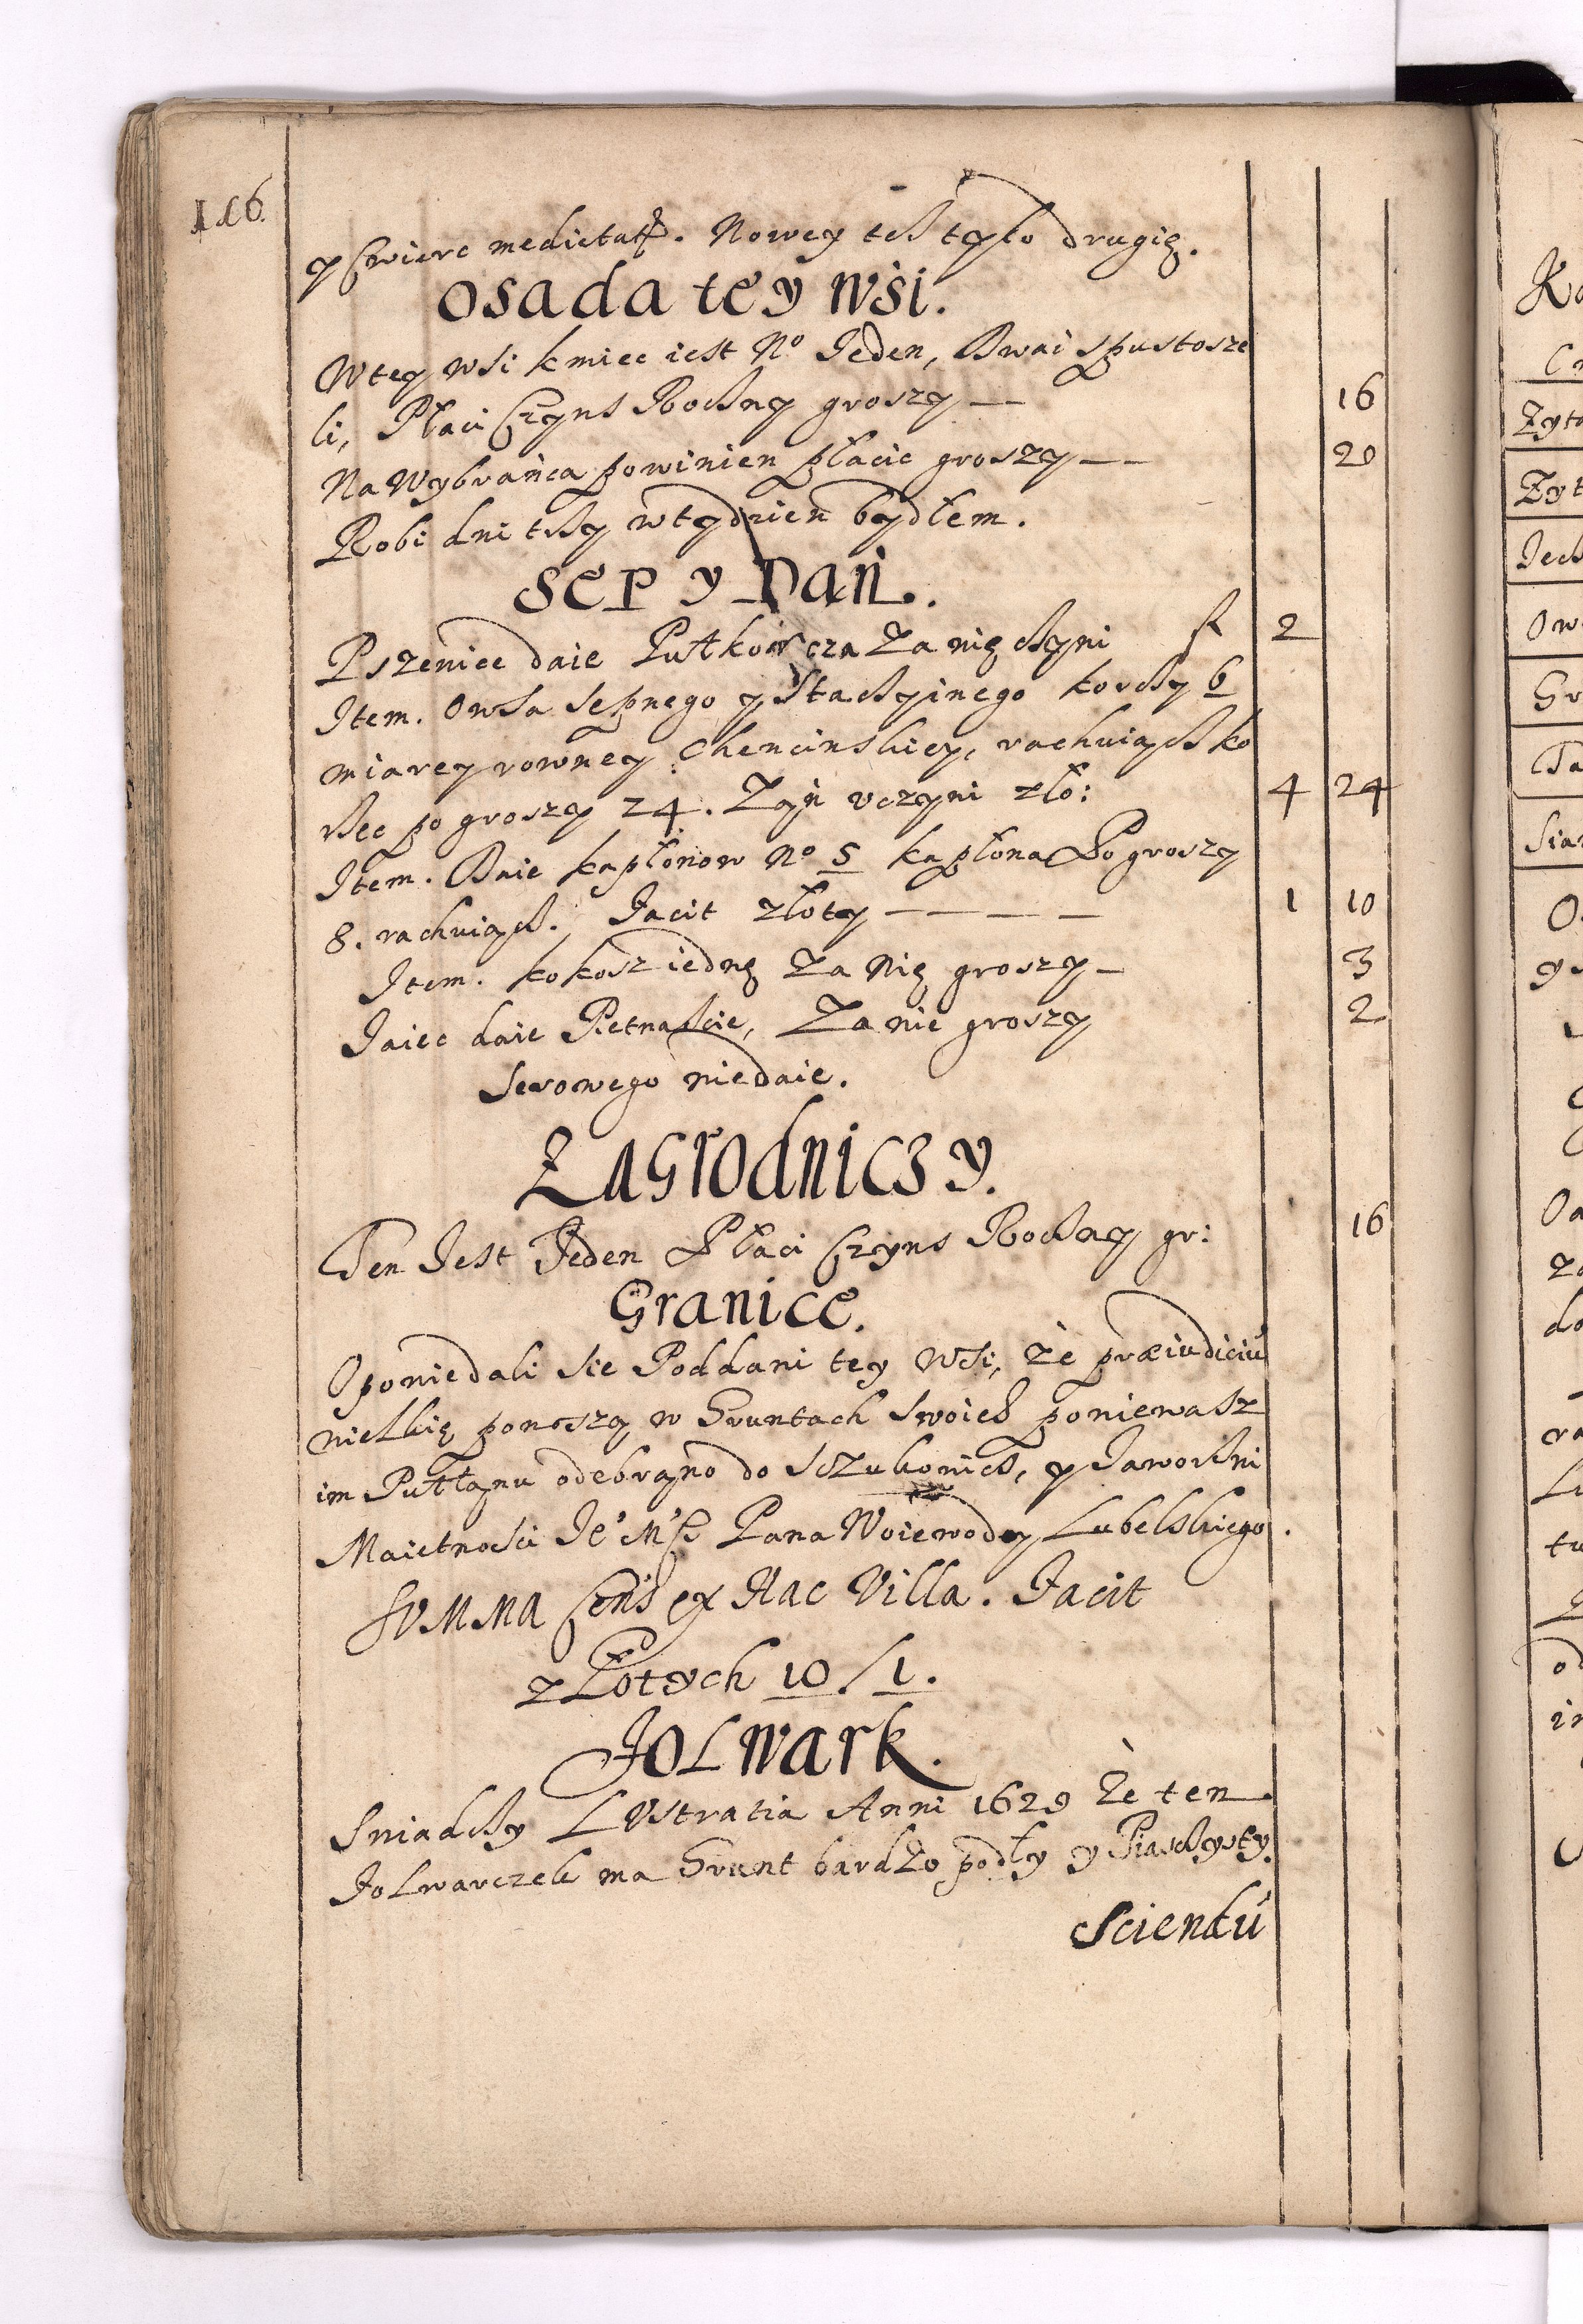 126.
y Czwierc medietatis. Nowey tesz tyło drugię.
Osada tey Wsi.
W tey wsi kmiec iest No Ieden, Dwai spustosze
li, Płaci Czyns Roczny groszy — 16
Na Wybrańca powinien płacic groszy — — 20
Robi dni trzy w tydzien bydłem.
Sep y Dań.
Pszenice daie Pułkorcza Za nię czyni f 2
Item. Owsa sepnego y Stacyinego korcy 6
miarey rowney Chencinskiey, rachuiącz ko
rzec po groszy 24. Zayn vczyni zło: 4 24
Item. Daie kapłonow No 5 kapłona Po groszy
8. rachuiącz. Facit złoty — — — — 1 10
Item. kokosz iednę Za Nię groszy — 3
Iaiec daie Pietnascie, Za nie groszy 2
Serowego niedaie.
Zagrodniczy.
Ten Iest Ieden Płaci Czyns Roczny gr: 16
Granice.
Opowiedali sie Poddani tey Wsi, że præiudiciũ
wielkię ponoszą w Gruntach swoich poniewasz
im Pułłanu odebrano do Sczukowicz, y Iaworzni
Maietnosci Ie' M'ści Pana Woiewody Lubelskiego.
Svmma Cens' ex Hac Villa. Facit
złotych 10 / 1.
Folwark.
Swiadczy Lustratia Anni 1629 że ten
Folwarczek ma Grunt bardzo podły y Piasczysty.
Sciendũ
Ka
Zyt
Iecz
Ow
Gr
Ta
Sia